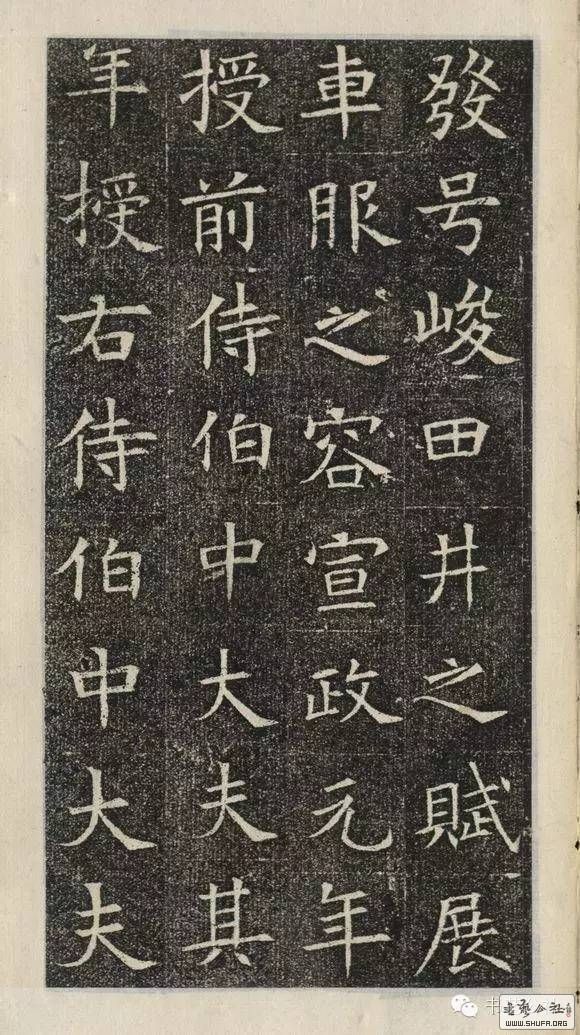 發号峻田井之賦展
車服之容宣政元年
授前侍伯中大夫其
年授右侍伯中大夫
WWW.SHUFA.ORG